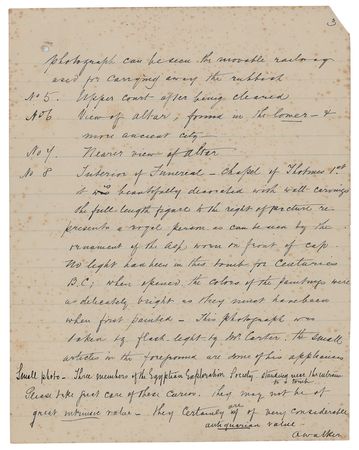 3
photograph can be seen the movable railway
used for carrying away the rubbish
No 5. Upper court after being cleared
No 6 View of altar, found in the lower - &
more ancient city
No 7. Nearer view of altar
No 8 Interior of Funereal - Chapel of Thotmes 1st
it was beautifully decorated with wall carvings
the full length figure to the right of picture re
presents a royal person as can be seen by the
ornament of the asp worn on front of cap
No light had been in this tomb for centuries
B.C; when opened the colors of the paintings were
as delicately bright as they must have been
when first painted - This photograph was
taken by flash light by Mr Carter. the small
articles in the foreground are some of his appliances
Small photo - Three members of the Egyptian Exploration Society standing near the entrance
to a tomb
Please take great care of these curios. They may not be of
great intrinsic value - they certainly are of very considerable
antiquarian value